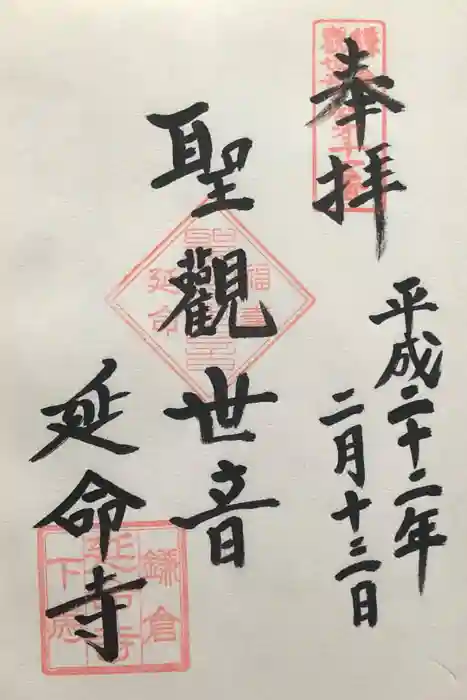 奉拝
平成二十二年
二月十三日
聖觀世音
延命寺
鎌倉
延命寺